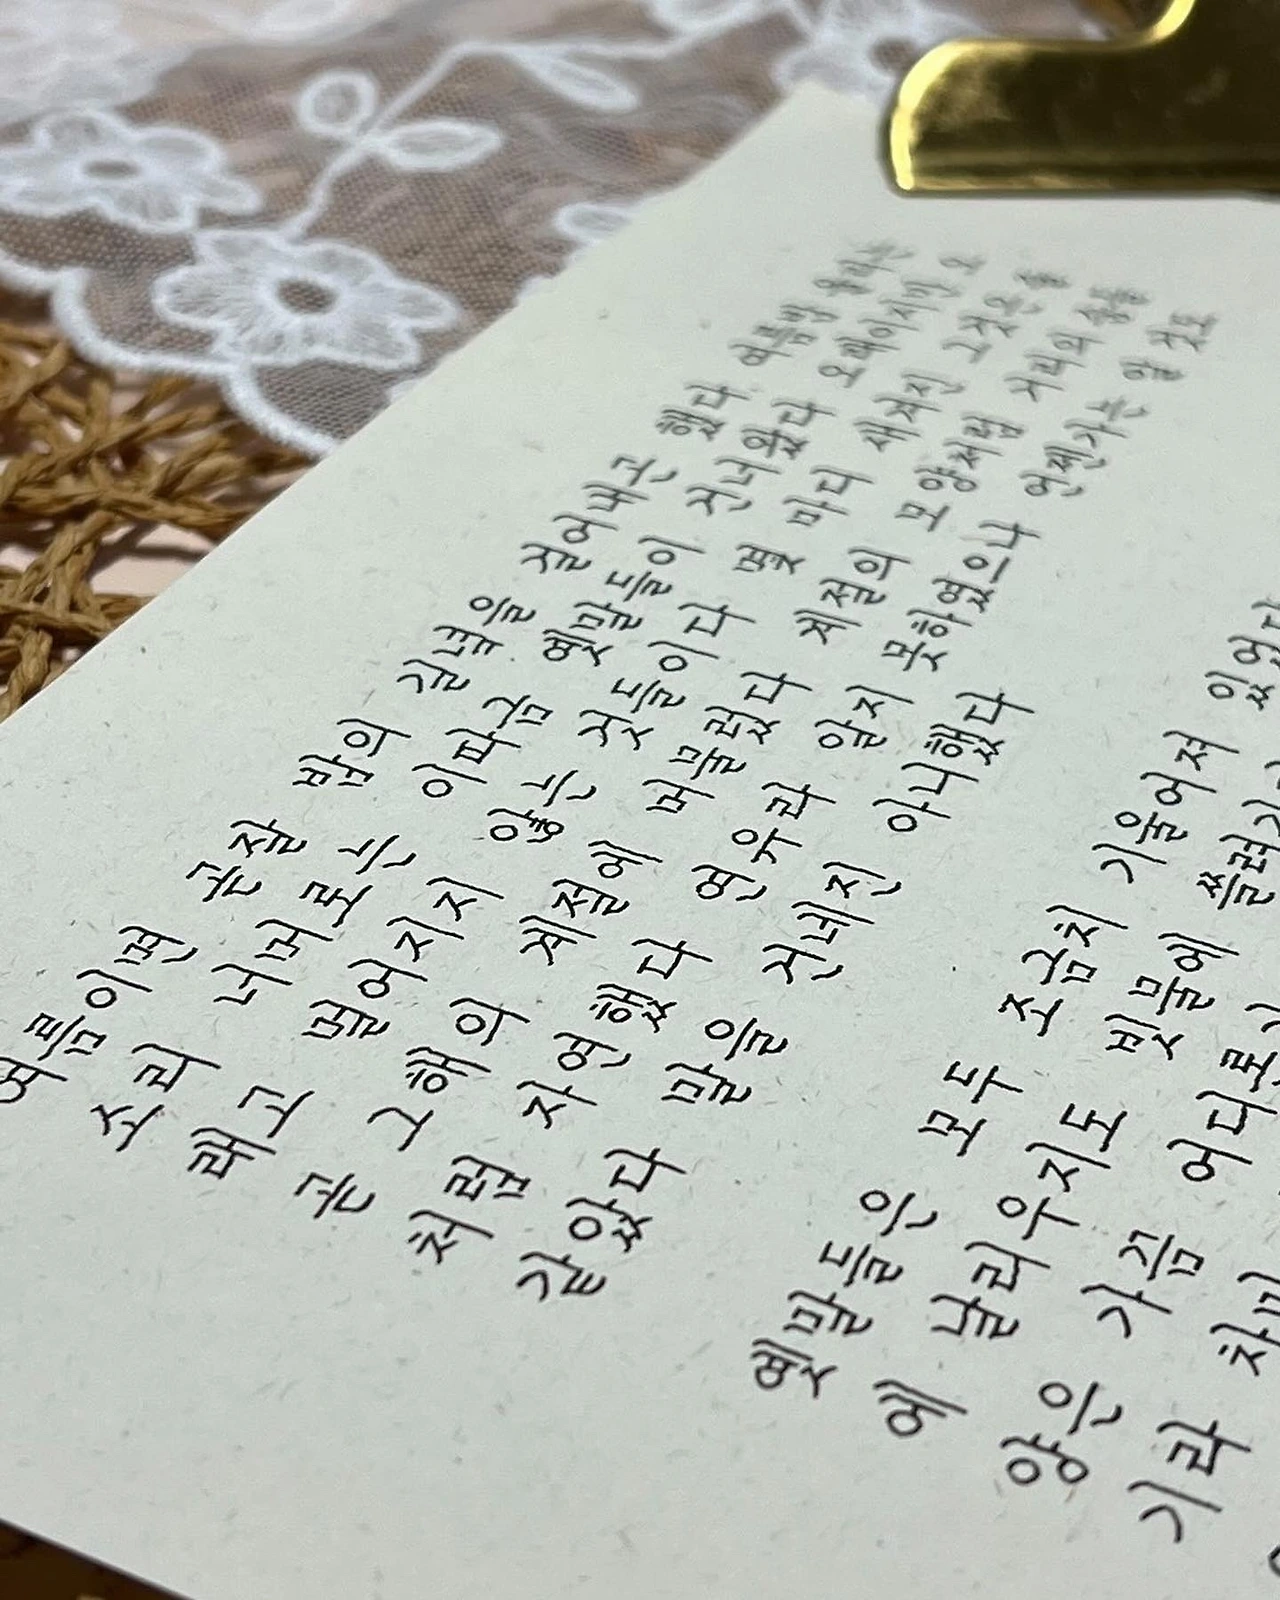 여름이면 곤잘 밤의 길녘을 걸어내곤 했다 여름밤 우리는
소리 너머로는 이따금 옛말들이 지녀왔다 오래이지만 오
래고 멀어지지 않는 것들이다 몇 마디 새겨진 그것은 늘
곤 그 해의 계절에 머물렀다 계절의 모양처럼 거리의
처럼 자연했다 연우라 알지 못하였으나 언젠가는 알 것도
같았다 말을 건네진 아니했다
옛말들은 모두 조금치 기울어져 있었
에 날리우지도 빗물에 쓸려가
않은 어디로
기라